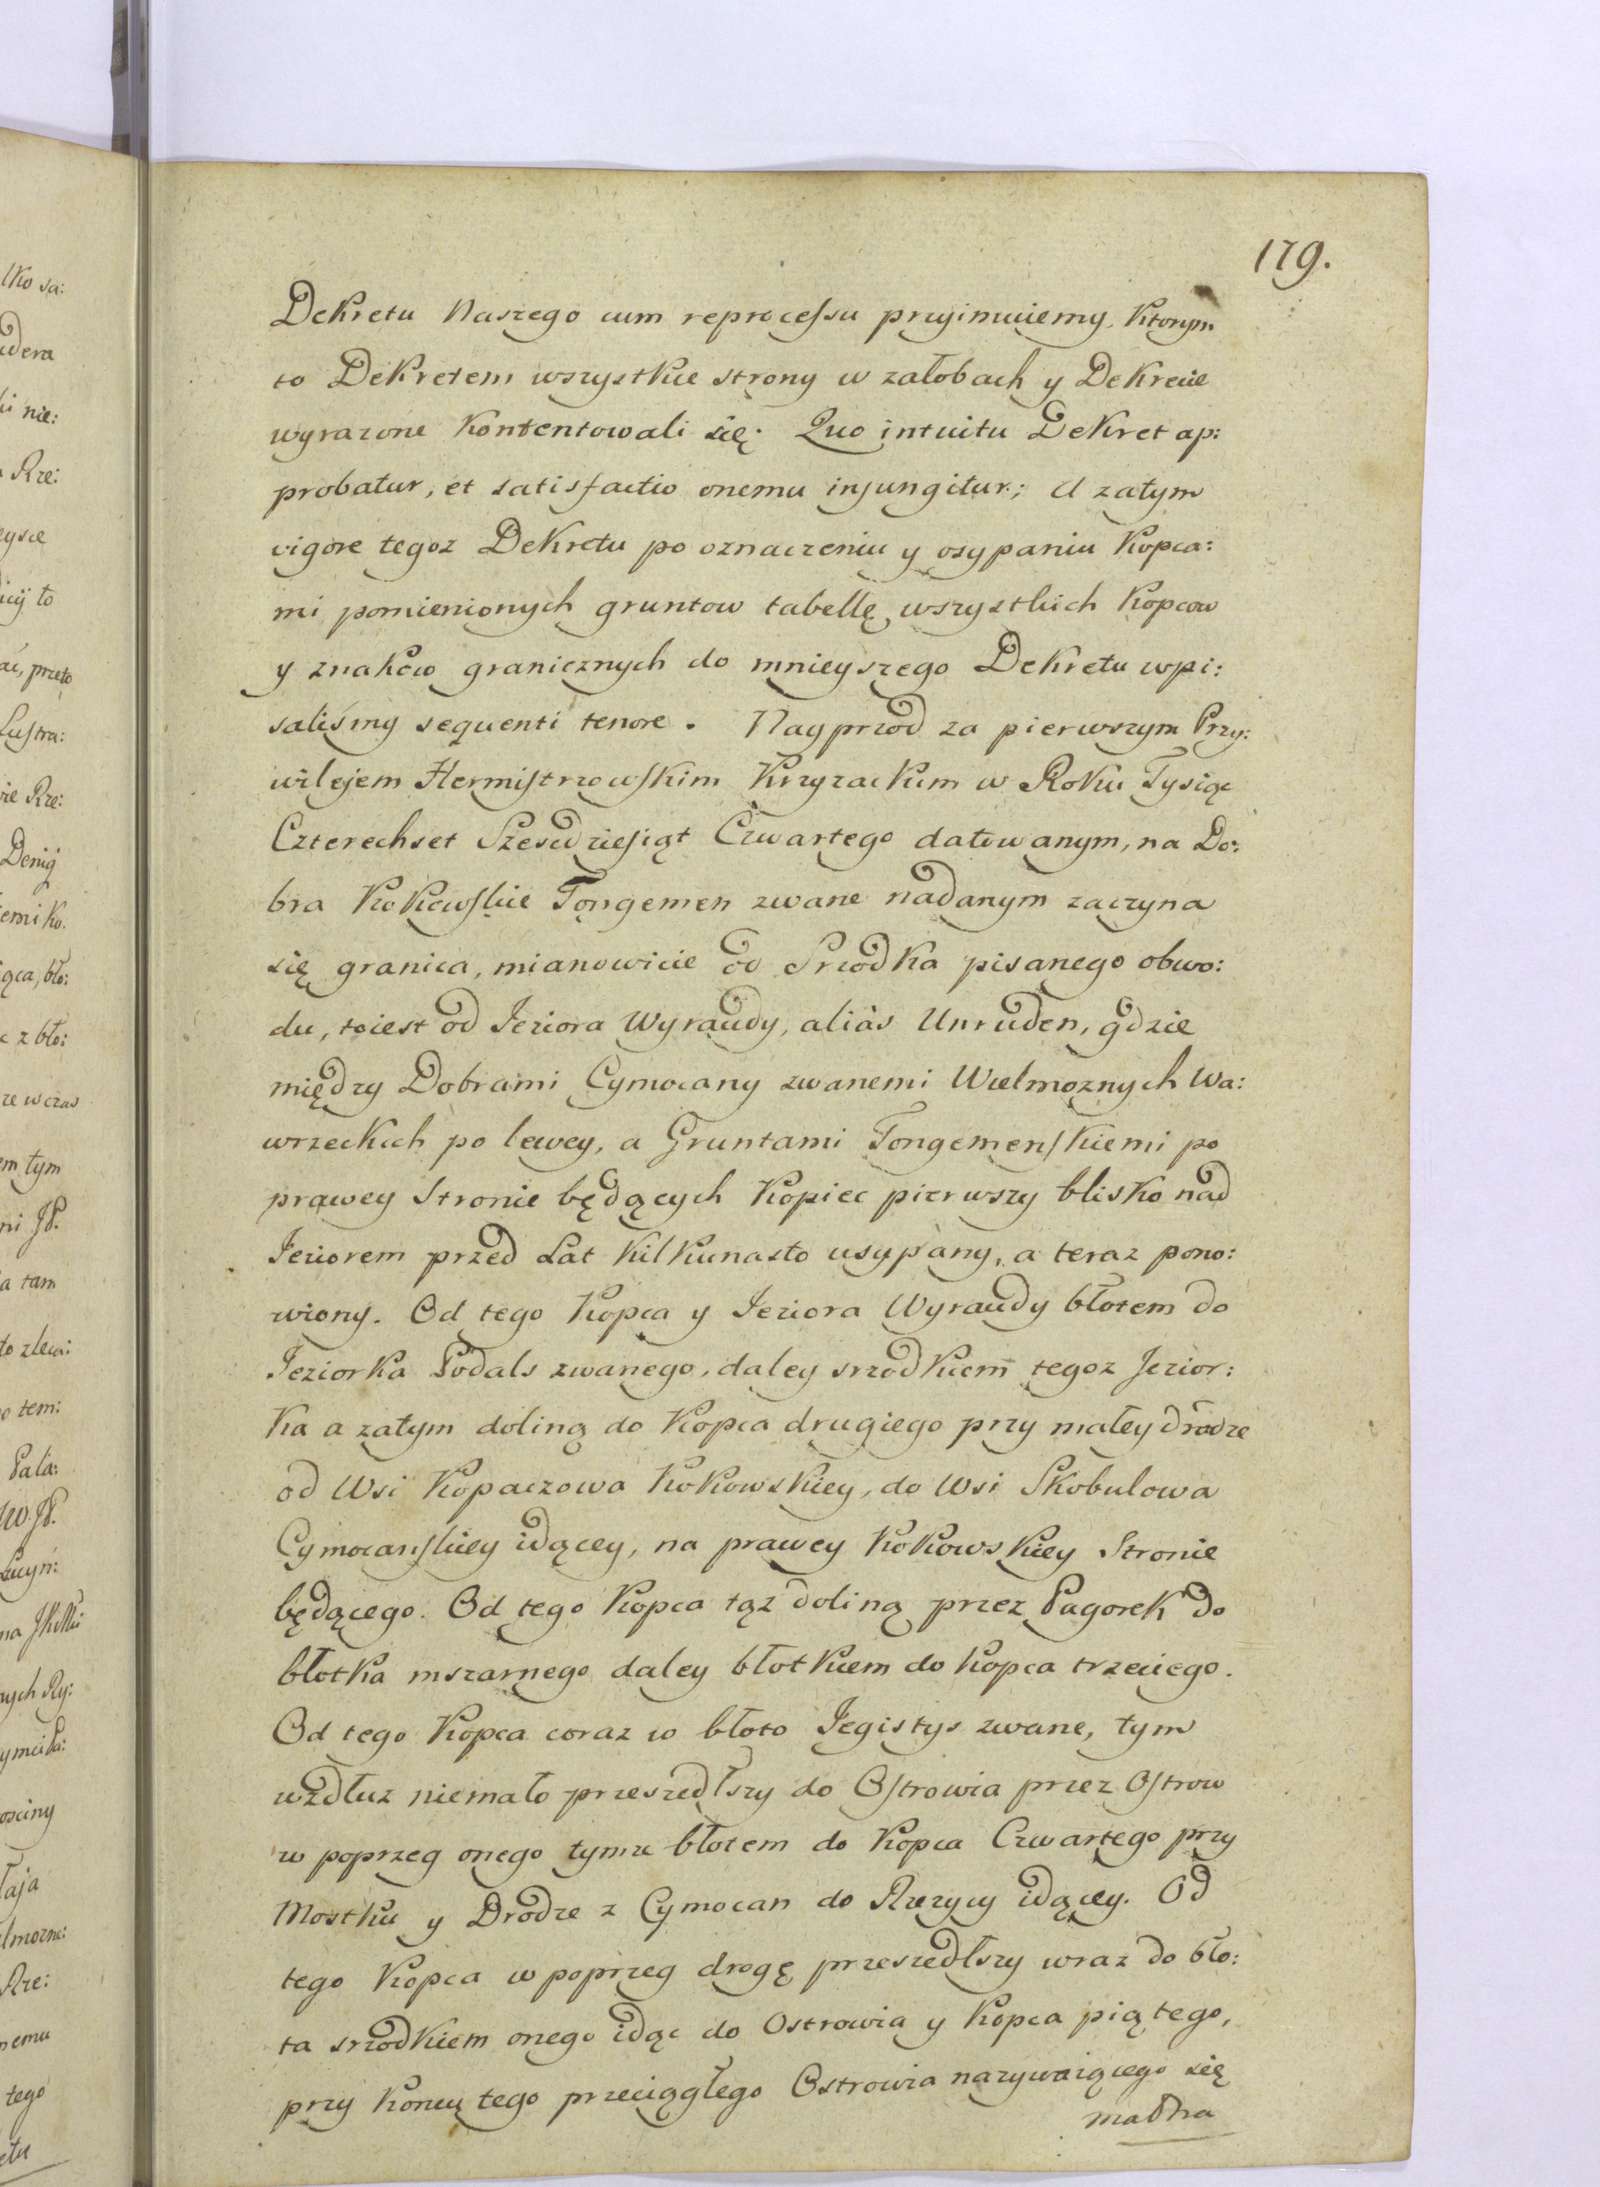 179.
Dekretu Naszego cum reprocessu przyimuiemy, Ktorym
to Dekretem wszystkie strony w załobach y Dekrecie
wyrazone Kontentowali się. Quo intuitu Dekret ap:
probatur, et satisfactio onemu injungitur; A zatym
vigore tegoz Dekretu po oznaczeniu y osypaniu Kopca:
mi pomienionych gruntow tabellę wszystkich Kopcow
y znakow granicznych do mnieyszego Dekretu wpi:
saliśmy sequenti tenore. Nayprzod za pierwszym Przy:
wilejem Hermistrzowskim Krzyzackim w Roku Tysiąc
Czterechset Szescdziesiąt Czwartego datowanym, na Do:
bra Kokowskie Tongemen zwane nadanym zaczyna
się granica, mianowicie od Srzodka pisanego obwo:
du, toiest od Jeziora Wyraudy, alias Unruden, gdzie
między Dobrami Cymocany zwanemi Wielmoznych Wa:
wrzeckich po lewey, a Gruntami Tongemenskiemi po
prawey Stronie będących Kopiec pierwszy blisko nad
Jeziorem przed Lat Kilkunasto usypany, a teraz pono:
wiony. Od tego Kopca y Jeziora Wyraudy błotem do
Jeziorka Podals zwanego, daley srzodkiem tegoz Jezior:
Ka a zatym doliną do Kopca drugiego przy małey drodze
od Wsi Kopaczowa Kokowskiey, do Wsi Skobulowa
Cymocanskiey idącey, na prawey Kokowskiey Stronie
będącego. Od tego Kopca tąz doliną przez Pagorek do
błotka mszarnego daley błotkiem do Kopca trzeciego.
Od tego Kopca coraz w błoto Jegistys zwane, tym
wzdłuz niemało przeszedłszy do Ostrowia przez Ostrow
w poprzeg onego tymze błotem do Kopca Czwartego przy
Mostku y Drodze z Cymocan do Rzezycy idącey. Od
tego Kopca w poprzeg drogę przeszedłszy wraz do bło:
ta srzodkiem onego idąc do Ostrowia y Kopca piątego,
przy Koncu tego przeciągłego Ostrowia nazywaiącego się